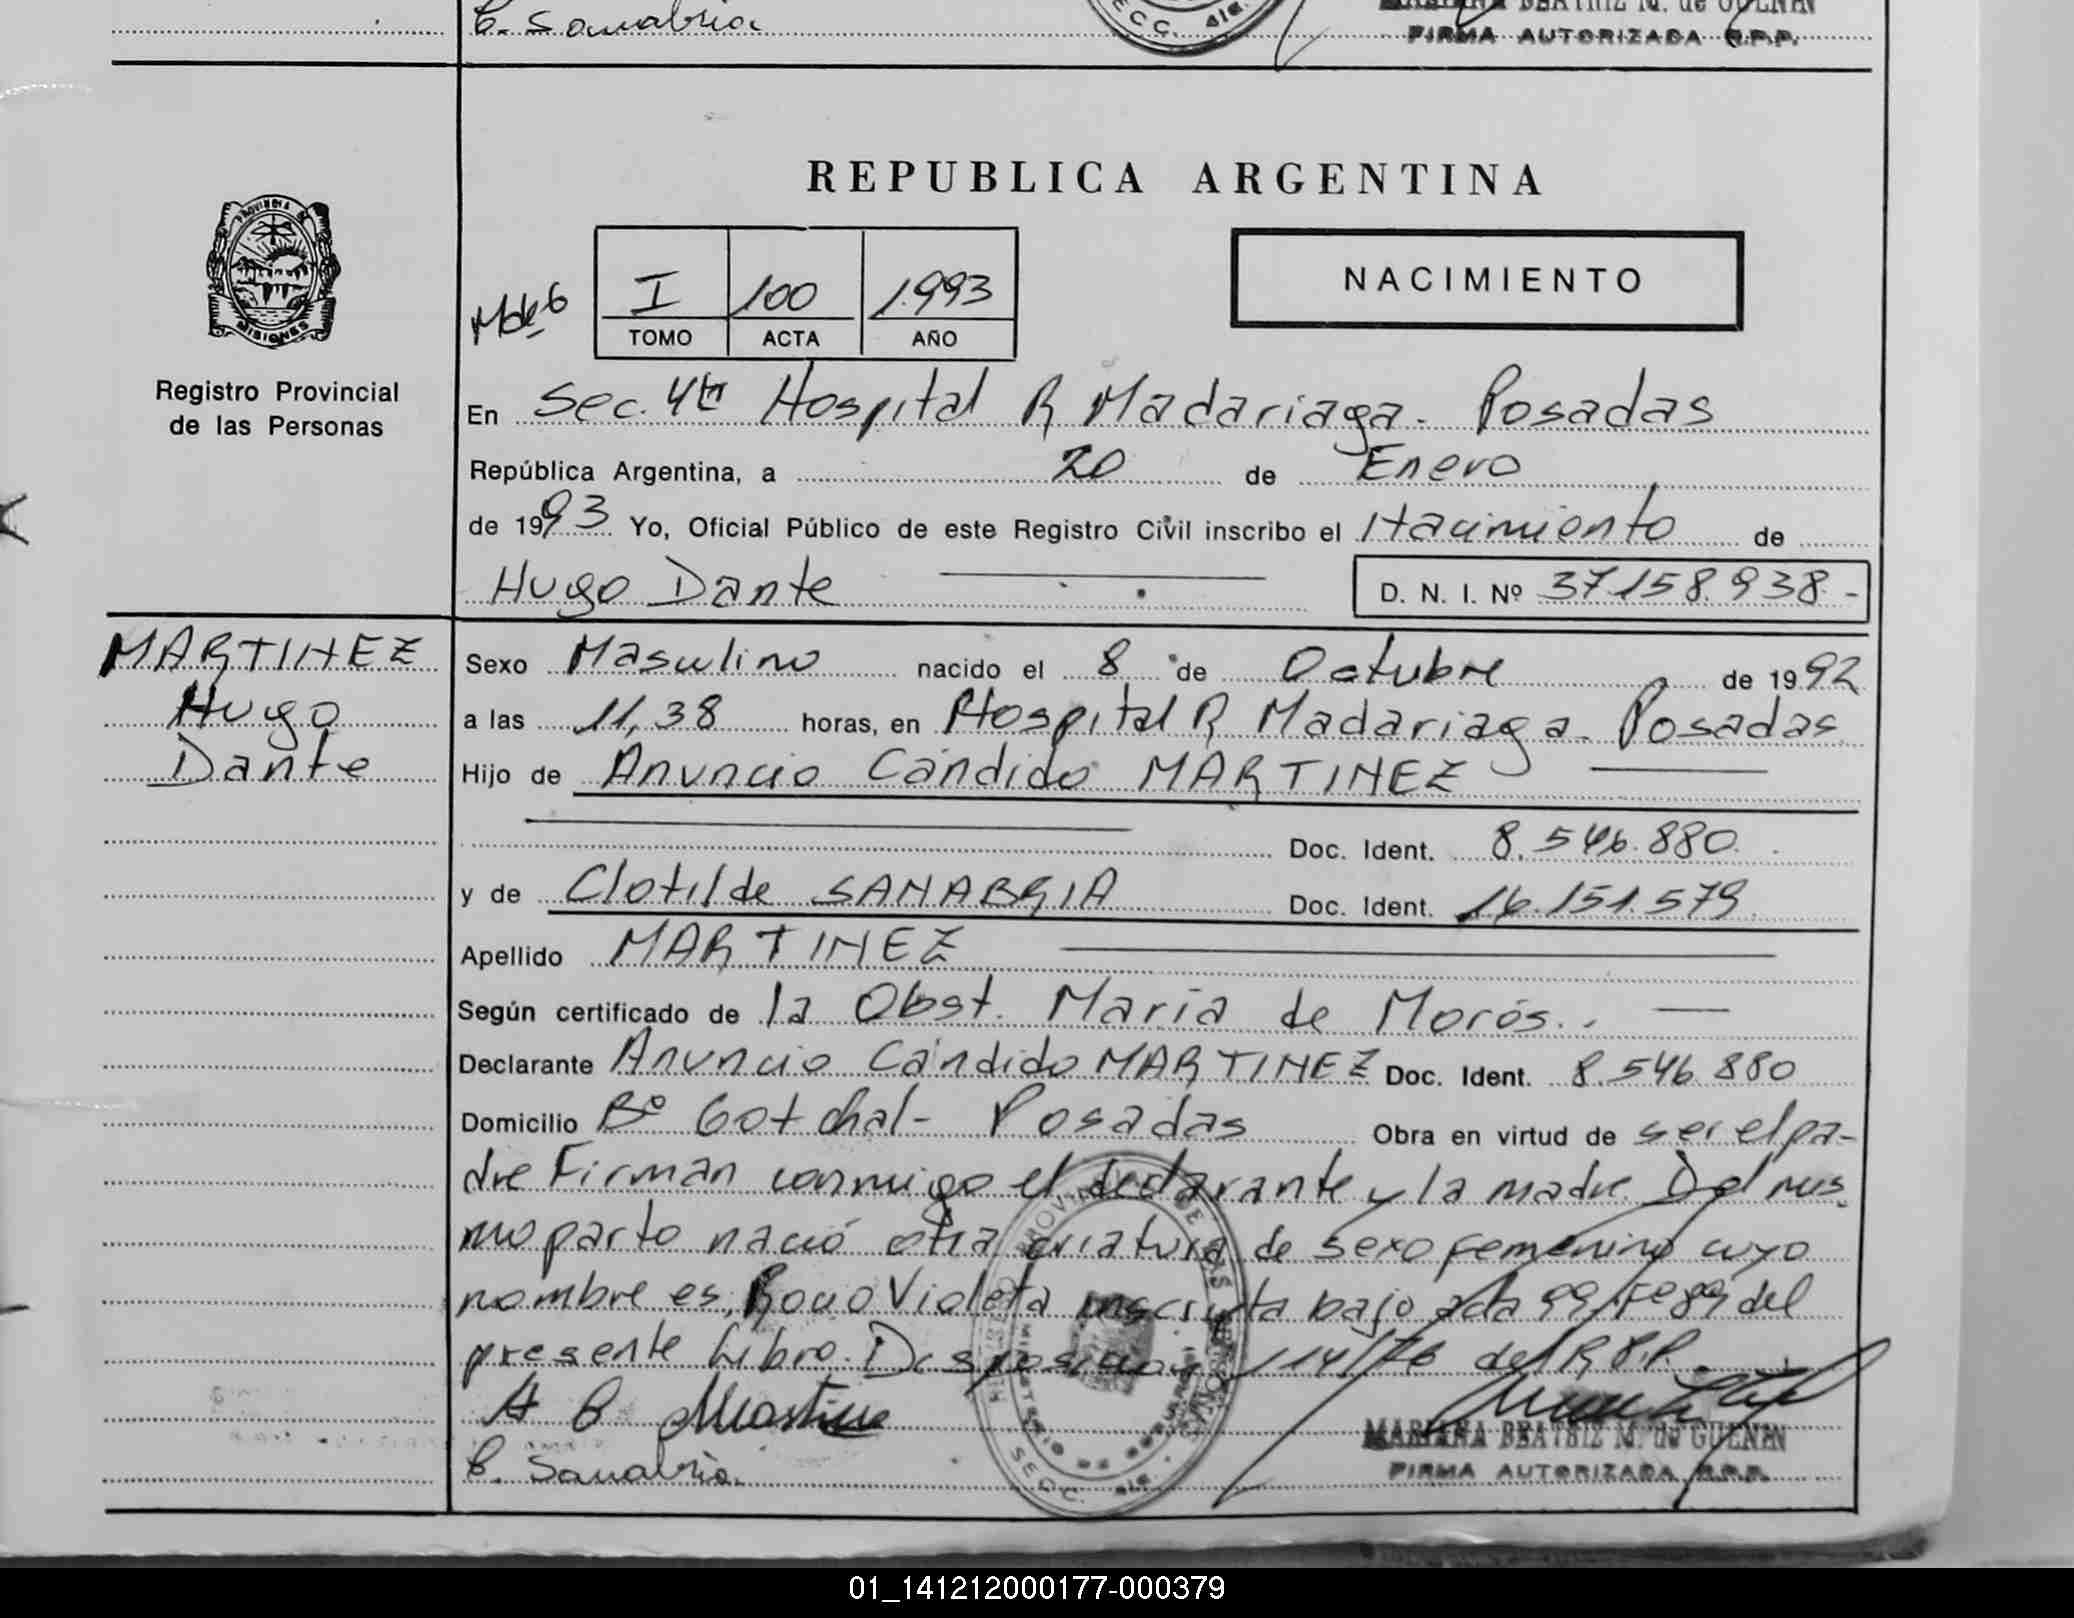 C. Sanabria
MARIANA BEATRIZ M. de GUENIN
FIRMA AUTORIZADA R.P.P.
REPUBLICA ARGENTINA
NACIMIENTO
I 100 1.993
TOMO ACTA AÑO
PROVINCIA DE
MISIONES
Registro Provincial
de las Personas
En Sec. 4ta Hospital R Madariaga. Posadas
República Argentina, a 20 de Enero
de 1993 Yo, Oficial Público de este Registro Civil inscribo el Nacimiento de
Hugo Dante D. N. I. Nº 37.158.938.-
MARTINEZ
Hugo
Dante
Sexo Masculino nacido el 8 de Octubre de 1992
a las 11,38 horas, en Hospital R Madariaga. Posadas
Hijo de Anuncio Cándido MARTINEZ
Doc. Ident. 8.546.880.
y de Clotilde SANABRIA Doc. Ident. 16.151.579.
Apellido MARTINEZ
Según certificado de la Obst. María de Morós..
Declarante Anuncio Cándido MARTINEZ Doc. Ident. 8.546.880
Domicilio Bº Gotchal- Posadas Obra en virtud de ser el pa-
dre Firman conmigo el declarante y la madre. Del mis
mo parto nació otra criatura de sexo femenino cuyo
nombre es, Rocio Violeta inscripta bajo acta 99 Fº 89 del
presente Libro. Disposicion 114/76 del R.P.P.
A C Martinez
C. Sanabria.
MARIANA BEATRIZ M. de GUENIN
FIRMA AUTORIZADA R.P.P.
01_141212000177-000379